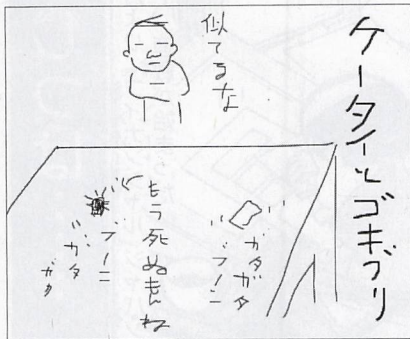 ケータイとゴキブリ
似てるな
ガタガタ
ブーン
もう死ぬもんね
ブーン
ガタ
ガタ